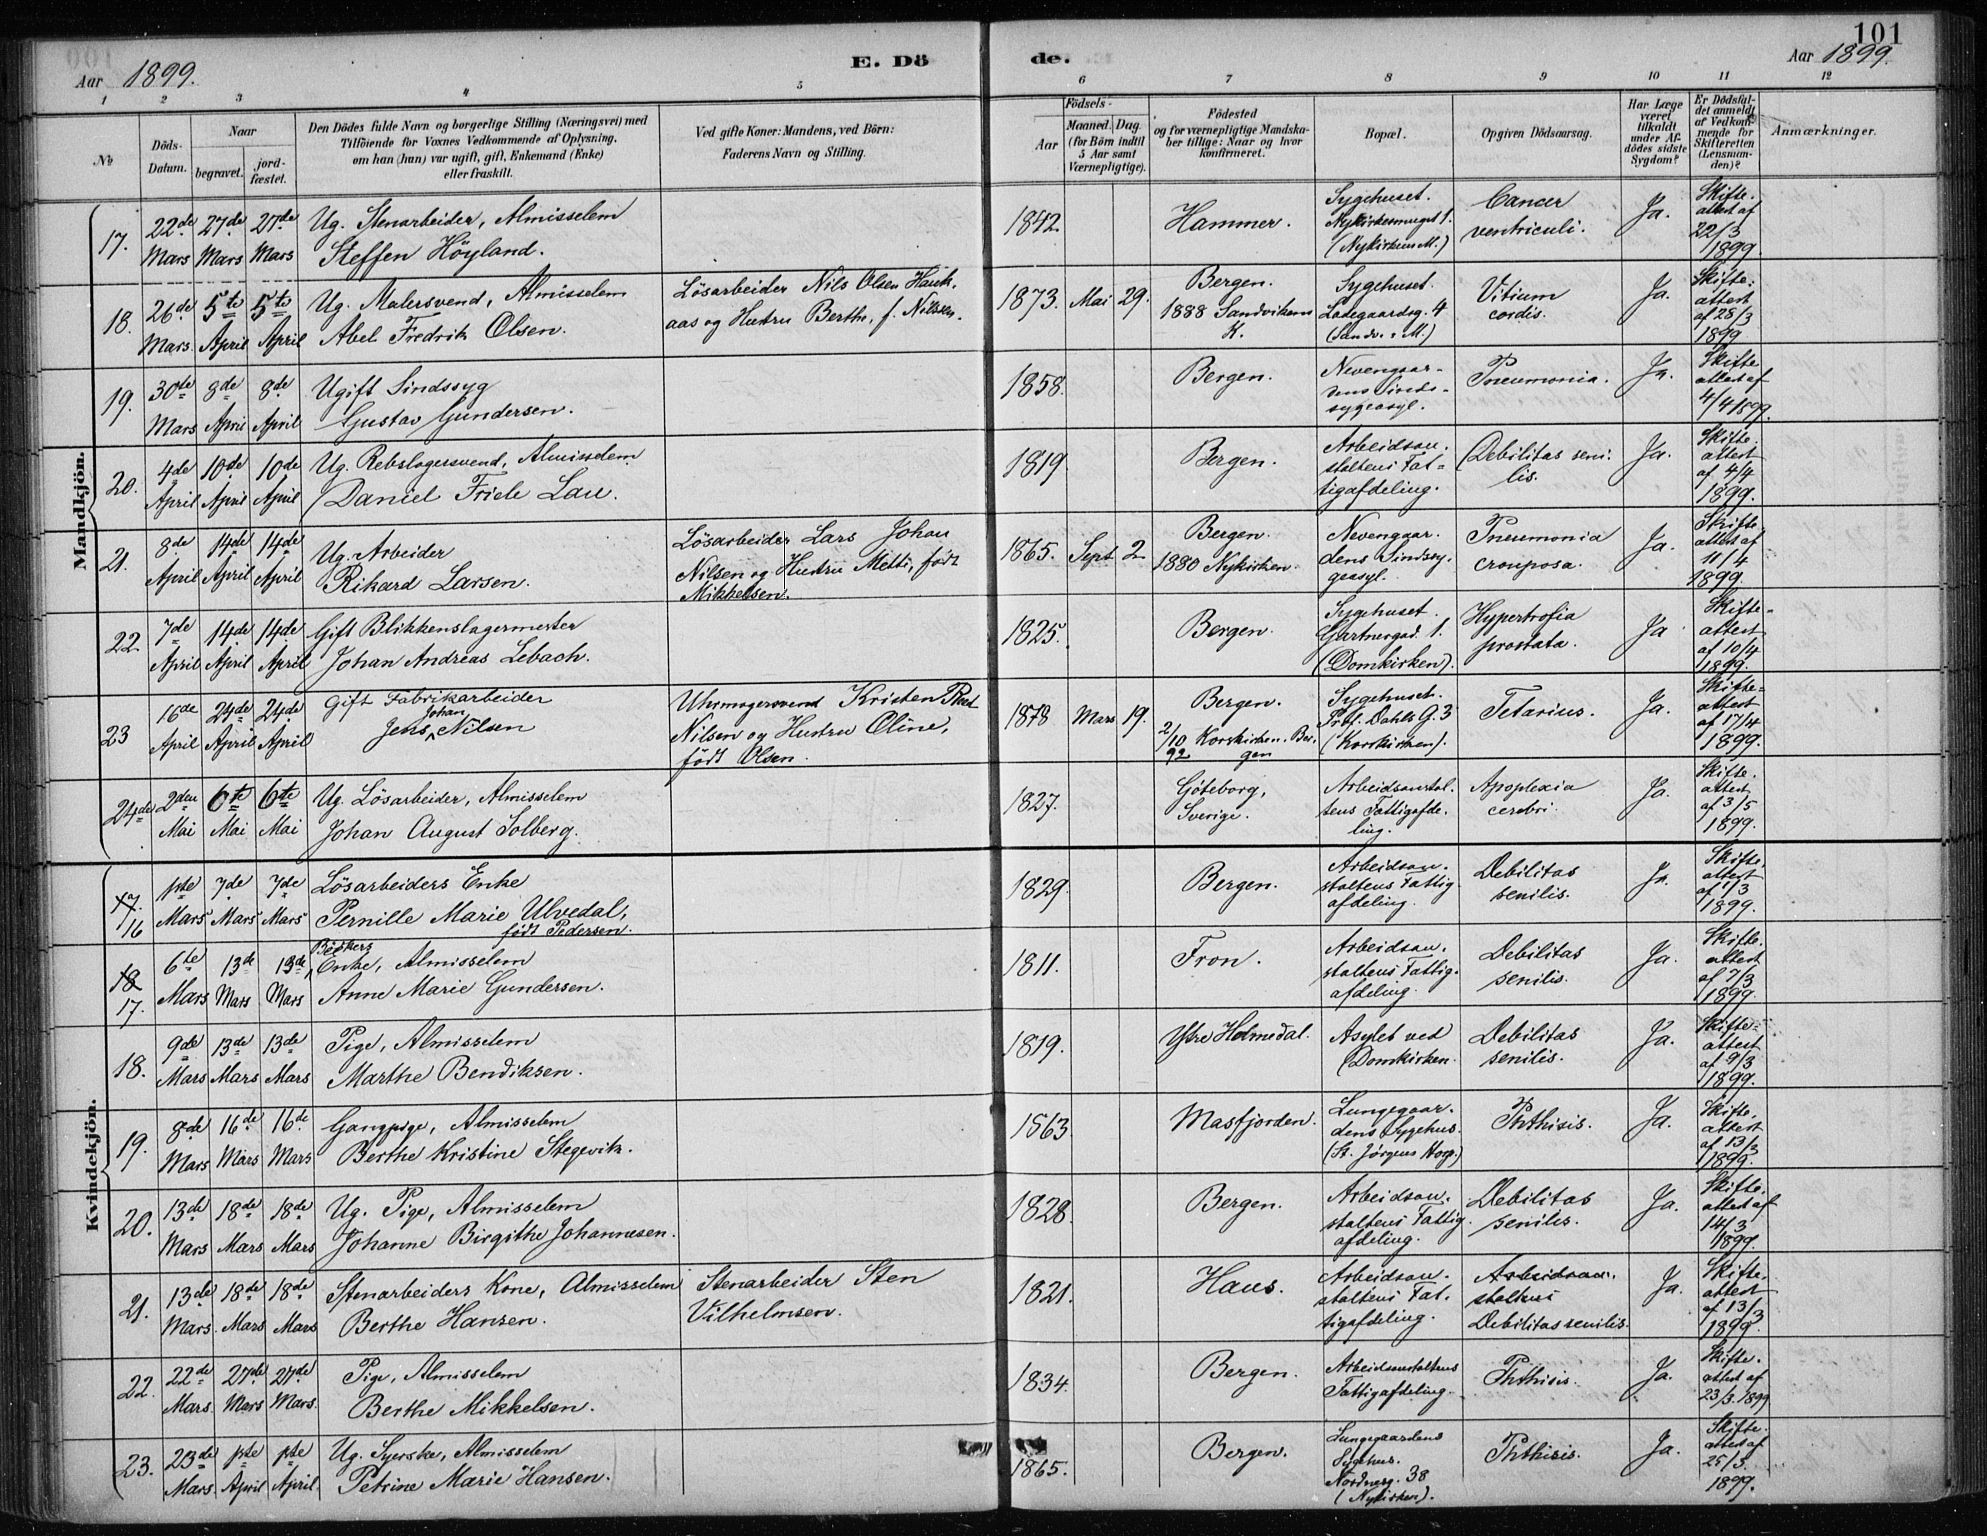 101
Aar 1899.
E. Döde.
Aar 1899.
1 2 3 4 5 6 7 8 9 10 11 12
No
Döds-Datum.
Naar
begravet.
jordfæstet.
Den Dödes fulde Navn og borgerlige Stilling (Næringsvei) med
Tilföiende for Voxnes Vedkommende af Oplysning,
om han (hun) var ugift, gift, Enkemand (Enke)
eller fraskilt.
Ved gifte Koner: Mandens, ved Börn:
Faderens Navn og Stilling.
Födsels-
Aar
Maaned. Dag.
(for Börn indtil
5 Aar samt
Værnepligtige).
Födested
og for værnepligtige Mandskaber tillige: Naar og hvor
konfirmeret.
Bopæl.
Opgiven Dödsaarsag.
Har Læge
været
tilkaldt
under Afdödes sidste
Sygdom?
Er Dödsfaldet anmeldt
af Vedkommende for
Skifteretten
(Lensmanden)?
Anmærkninger.
Mandkjön.
17. 22de Mars 27de Mars 27de Mars
Ug. Stenarbeider, Almisselem
Steffen Höyland.
1842. Hammer.
Sygehuset.
Nykirkesmuget 1.
(Nykirkens M.)
Cancer
ventriculi.
Ja.
Skifteattest af
22/3
1899
18. 26de Mars 5te April 5te April
Ug. Malersvend, Almisselem
Abel Fredrik Olsen.
Lösarbeider Nils Olsen Haukaas og Hustru Berthe, f. Nilsen.
1873. Mai 29.
Bergen.
1888 Sandvikens
K.
Sygehuset.
Ladegaardsg. 4
(Sandv.s M.)
Vitium
cordis.
Ja.
Skifteattest
af 28/3
1899
19. 30de Mars 8de April 8de April
Ugift Sindssyg
Gustav Gundersen.
1858. Bergen.
Nevengaardens Sindssygeasyl.
Pneumonia.
Ja.
Skifteattest af
4/4 1899.
20. 4de April 10de April 10de April
Ug. Rebslagersvend, Almisselem
Daniel Friele Lau.
1819 Bergen.
Arbeidsanstaltens Fattigafdeling.
Debilitas senilis.
Ja.
Skifteattest
af 4/4
1899.
21. 8de April 14de April 14de April
Ug. Arbeider
Rikard Larsen.
Lösarbeider Lars Johan
Nilsen og Hustru Metti, födt
Mikkelsen.
1865. Sept 2.
Bergen.
1880 Nykirken.
Nevengaardens Sindssygeasyl.
Pneumonia
crouposa.
Ja.
Skifteattest af
11/4
1899.
22. 7de April 14de April 14de April
Gift Blikkenslagermester
Johan Andreas Lebach.
1825. Bergen.
Sygehuset.
Gartnergad. 1.
(Domkirken).
Hypertrofia
prostata.
Ja
Skifteattest
af 10/4
1899.
23 16de April 24de April 24de April
Gift Fabrikarbeider
Jens Johan Nilsen
Uhrmagersvend Kristen
Nilsen og Hustru Oline,
födt Olsen.
1878 Mars 19.
Bergen.
2/10 92 Korskirken. Bergen
Sygehuset.
Prof. Dahls G. 3
(Korskirken).
Tetarius.
Ja.
Skifteattest
af 17/4
1899.
24de 2den Mai 6te Mai 6te Mai
Ug. Lösarbeider, Almisselem
Johan August Solberg.
1827.
Göteborg,
Sverige.
Arbeidsanstaltens Fattigafdeling.
Apoplexia
cerebri.
Ja.
Skifteattest
af 3/5
1899.
Kvindekjön.
17. 16 1ste Mars 7de Mars 7de Mars
Lösarbeiders Enke
Pernille Marie Ulvedal,
födt Pedersen.
1829. Bergen.
Arbeidsanstaltens Fattigafdeling.
Debilitas
senilis.
Ja.
Skifteattest
af 1/3
1899.
18 17. 6te Mars 13de Mars 13de Mars
Bödkers
Enke, Almisselem
Anne Marie Gundersen.
1811. Fron.
Arbeidsanstaltens Fattigafdeling.
Debilitas
senilis.
Ja.
Skifteattest
af 7/3
1899.
18. 9de Mars 13de Mars 13de Mars
Pige, Almisselem
Marthe Bendiksen.
1819. Ytre Holmedal.
Asylet ved
Domkirken
Debilitas
senilis.
Ja.
Skifteattest
af 9/3
1899.
19. 8de Mars 16de Mars 16de Mars
Gangpige, Almisselem
Berthe Kristine Stegevik.
1863 Masfjorden.
Lungegaardens Sygehus.
(St. Jørgens Hosp.)
Phthisis.
Ja.
Skifteattest
af 13/3
1899.
20. 13de Mars 18de Mars 18de Mars
Ug. Pige, Almisselem
Johanne Birgithe Johannesen.
1828. Bergen.
Arbeidsanstaltens Fattigafdeling.
Debilitas
senilis.
Ja.
Skifteattest af
14/3
1899.
21. 13de Mars 18de Mars 18de Mars
Stenarbeiders Kone, Almisselem
Berthe Hansen.
Stenarbeider Sten
Vilhelmsen.
1821. Haus.
Arbeidsanstaltens Fattigafdeling.
Arbeidsanstaltens
Debilitas senilis.
Ja.
Skifteattest
af 13/3
1899.
22. 22de Mars. 27de Mars 27de Mars.
Pige, Almisselem
Berthe Mikkelsen.
1834. Bergen.
Arbeidsanstaltens
Fattigafdeling.
Phthisis.
Ja.
Skifteattest af
23/3. 1899
23. 23de Mars. 1ste April 1ste April
Ug. Syerske, Almisselem
Petrine Marie Hansen.
1865. Bergen.
Lungegaardens
Sygehus.
Nordnesg. 38
(Nykirken).
Phthisis.
Ja.
Skifteattest af
25/3.
1899.